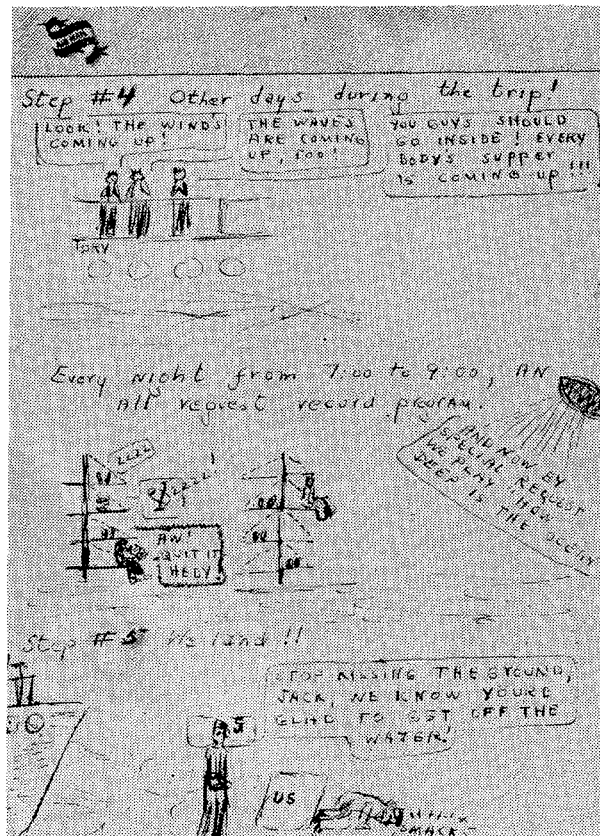 AIR MAIL
Step #4 Other days during the trip!
LOOK! THE WIND'S
COMING UP!
THE WAVES
ARE COMING
UP, TOO!
YOU GUYS SHOULD
GO INSIDE! EVERY
BODYS SUPPER
IS COMING UP!!!
Every night from 7:00 to 9:00, AN
All request record program.
ZZZZ
ZZZZ!
AND NOW BY
SPECIAL REQUEST
WE PLAY "HOW
DEEP IS THE OCEAN
AW!
QUIT IT
HEDY!
Step #5 We land!!
STOP KISSING THE GROUND,
JACK, WE KNOW YOU'RE
GLAD TO GET OFF THE
WATER!
US
SMACK